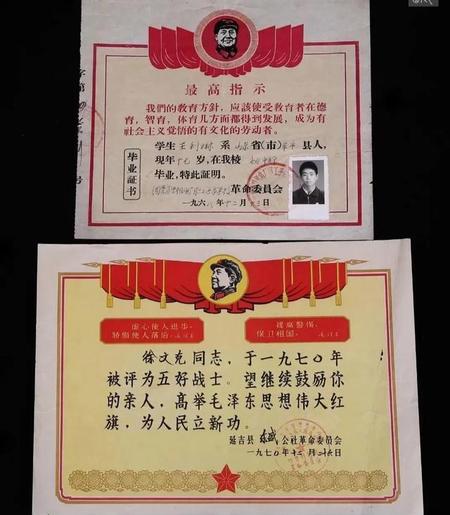 最高指示
我們的教育方針，應該使受教育者在德
育，智育，体育几方面都得到发展，成为有
社会主义覚悟的有文化的劳动者。
学生 系 省(市) 县人，
現年 岁，在我校
毕业，特此証明。
毕业証书
革命委員会
一九六八年十二月 日
虚心使人进步，
骄傲使人落后。
提高警惕，
保卫祖国。
徐文克同志，于一九七〇年
被评为五好战士。望继续鼓励你
的亲人，高举毛泽东思想伟大红
旗，为人民立新功。
延吉县 公社革命委员会
一九七〇年十二月 日